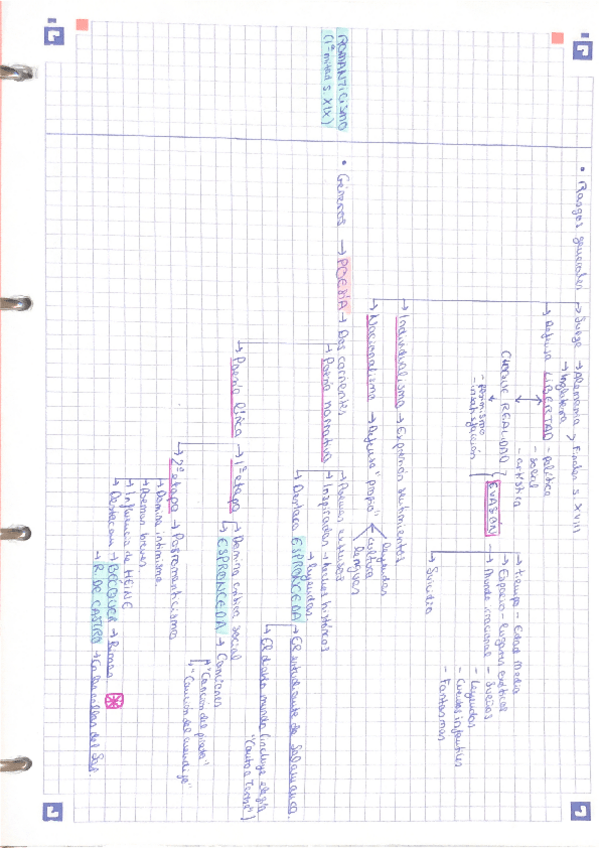 ROMANTICISMO
(1ª mitad s. XIX)
• Rasgos generales → Surge → Alemania > Finales s. XVIII
→ Inglaterra
→ Defensa LIBERTAD - política
- social
- artística
CHOQUE REALIDAD
- pesimismo
- insatisfacción
EVASIÓN
→ Tiempo - Edad Media
→ Espacio - lugares exóticos
→ Mundo irracional - Sueños
- Leyendas
- Cuentos infantiles
- Fantasmas
→ Suicidio
→ Individualismo → Expresión sentimientos
→ Nacionalismo → Defensa "propio"
leyendas
cultura
lenguas
• Géneros → POESÍA → Dos corrientes
→ Poesía narrativa
→ Poemas extensos
→ Inspirados → hechos históricos
→ leyendas
→ Destaca ESPRONCEDA → El estudiante de Salamanca.
→ El diablo mundo (incluye elegía
"Canto a Teresa")
→ Poesía lírica → 1ª etapa → Domina crítica social
→ ESPRONCEDA → Canciones
→ "Canción del pirata"
→ "Canción del mendigo"
→ 2ª etapa → Posromanticismo
→ Domina intimismo.
→ Poemas breves
→ Influencia de HEINE
→ Destacan → BÉCQUER → Rimas
→ R. DE CASTRO → En las orillas del Sar.